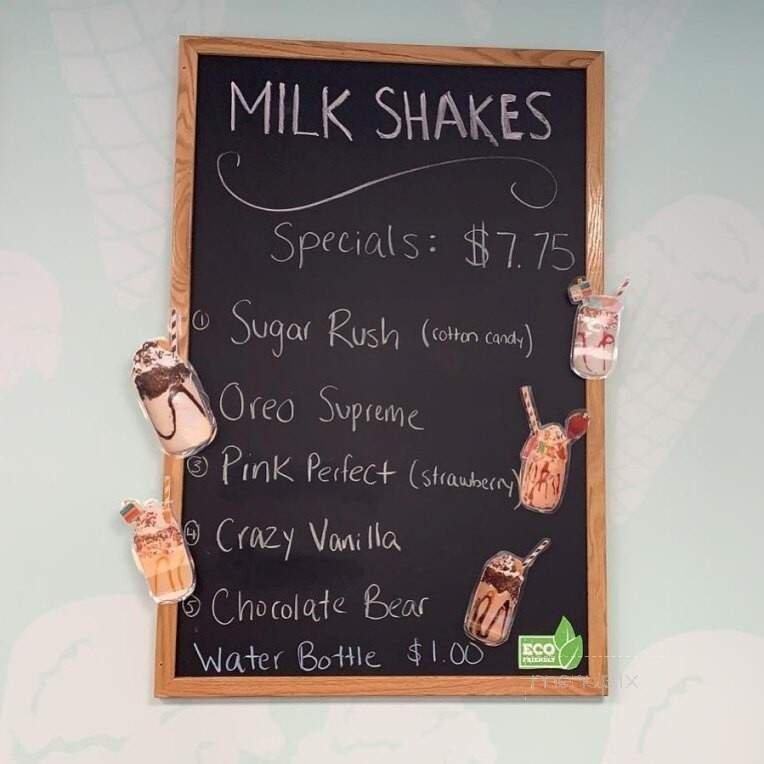 MILK SHAKES
Specials: $7.75
① Sugar Rush (cotton candy)
Oreo Supreme
③ Pink Perfect (strawberry
④ Crazy Vanilla
⑤ Chocolate Bear
Water Bottle $1.00
ECO
FRIENDLY